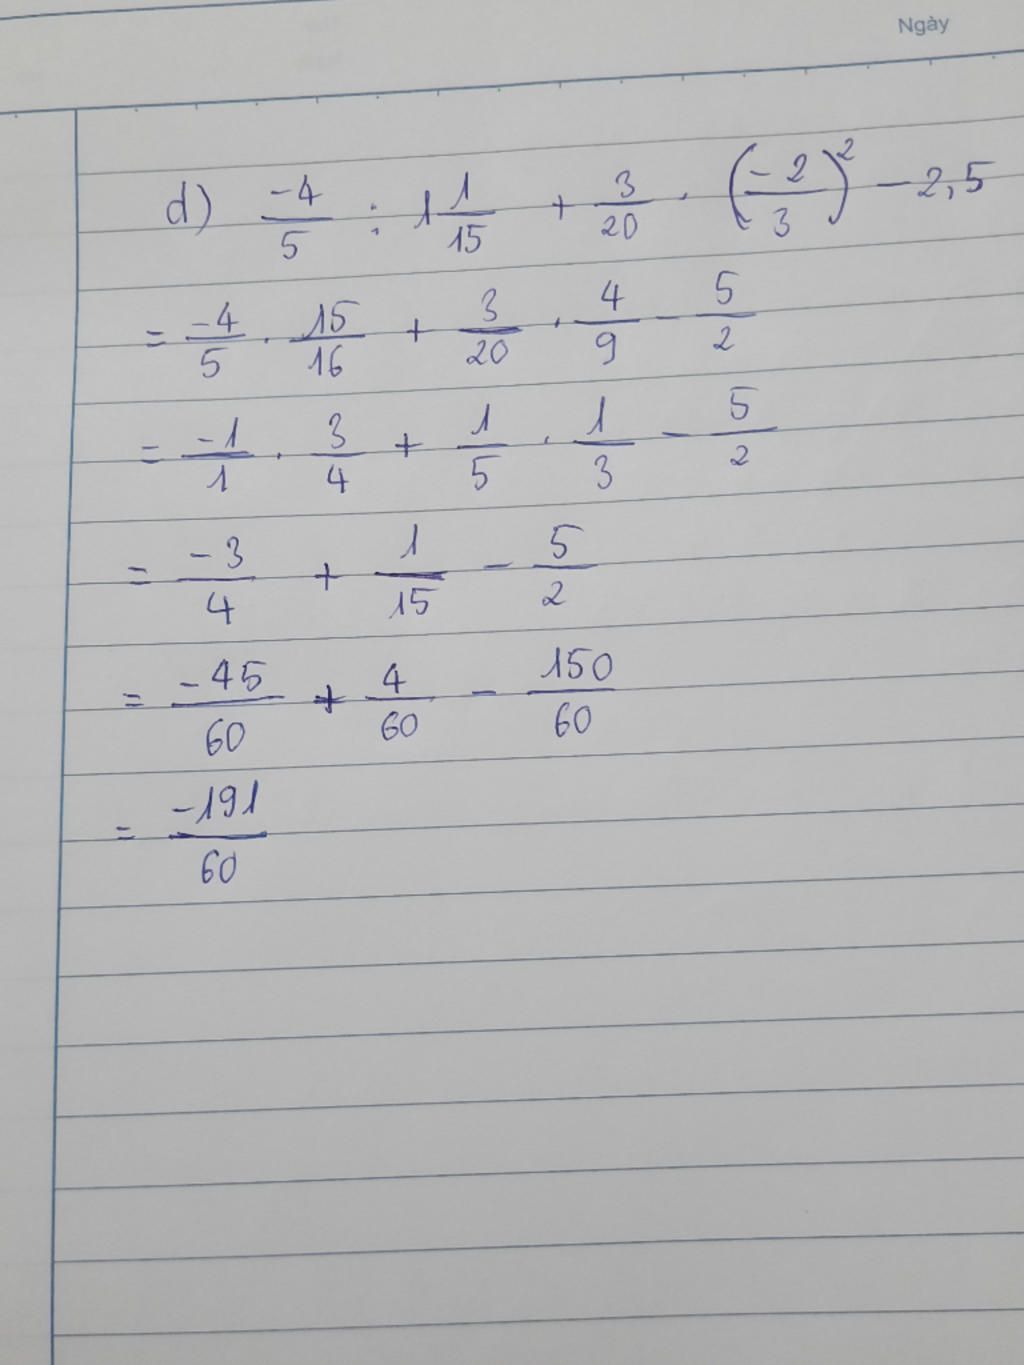 Ngày
d) \frac{-4}{5} : 1\frac{1}{15} + \frac{3}{20} . \left(\frac{-2}{3}\right)^2 - 2,5
= \frac{-4}{5} . \frac{15}{16} + \frac{3}{20} . \frac{4}{9} - \frac{5}{2}
= \frac{-1}{1} . \frac{3}{4} + \frac{1}{5} . \frac{1}{3} - \frac{5}{2}
= \frac{-3}{4} + \frac{1}{15} - \frac{5}{2}
= \frac{-45}{60} + \frac{4}{60} - \frac{150}{60}
= \frac{-191}{60}